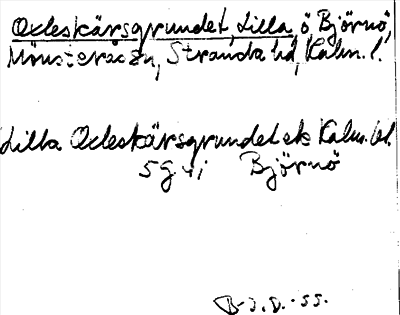 Oxleskärsgrundet, Lilla ö Björnö,
Mönsterås sn, Stranda hd, Kalm. l.
Lilla Oxleskärsgrundet ek Kalm. bl.
5 G
Björnö